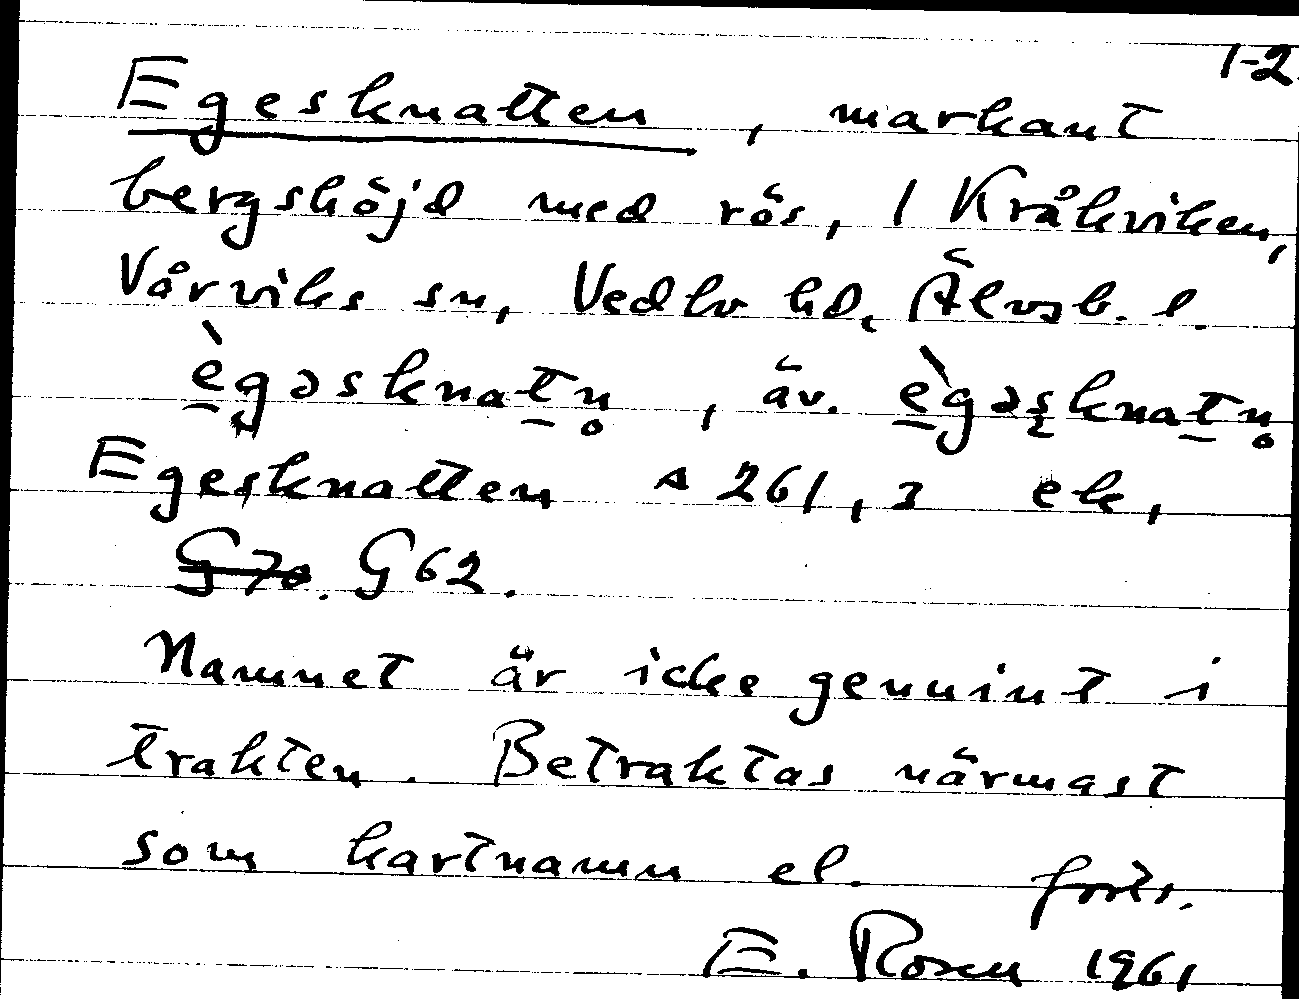 1-2
Egesknatten, markant
bergshöjd med rös, 1 Kråkviken,
Vårviks sn, Vedbo hd, Älvsb. l.
ègəsknatn̥, äv. ègəsknatn̥
Egesknatten A 261, 3 ek,
G 70. G 62.
Namnet är icke genuint i
trakten. Betraktas närmast
som kartnamn el. forts.
E. Rosen 1961